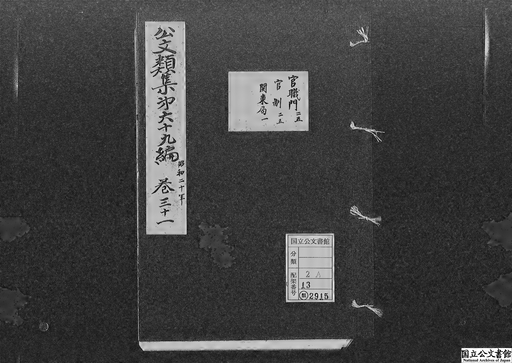 公文類集第六十九編 昭和二十年 巻三十一
官職門 二五
官制 二五
関東局一
国立公文書館
分類
配架番号
2A
13
類2915
国立公文書館
National Archives of Japan